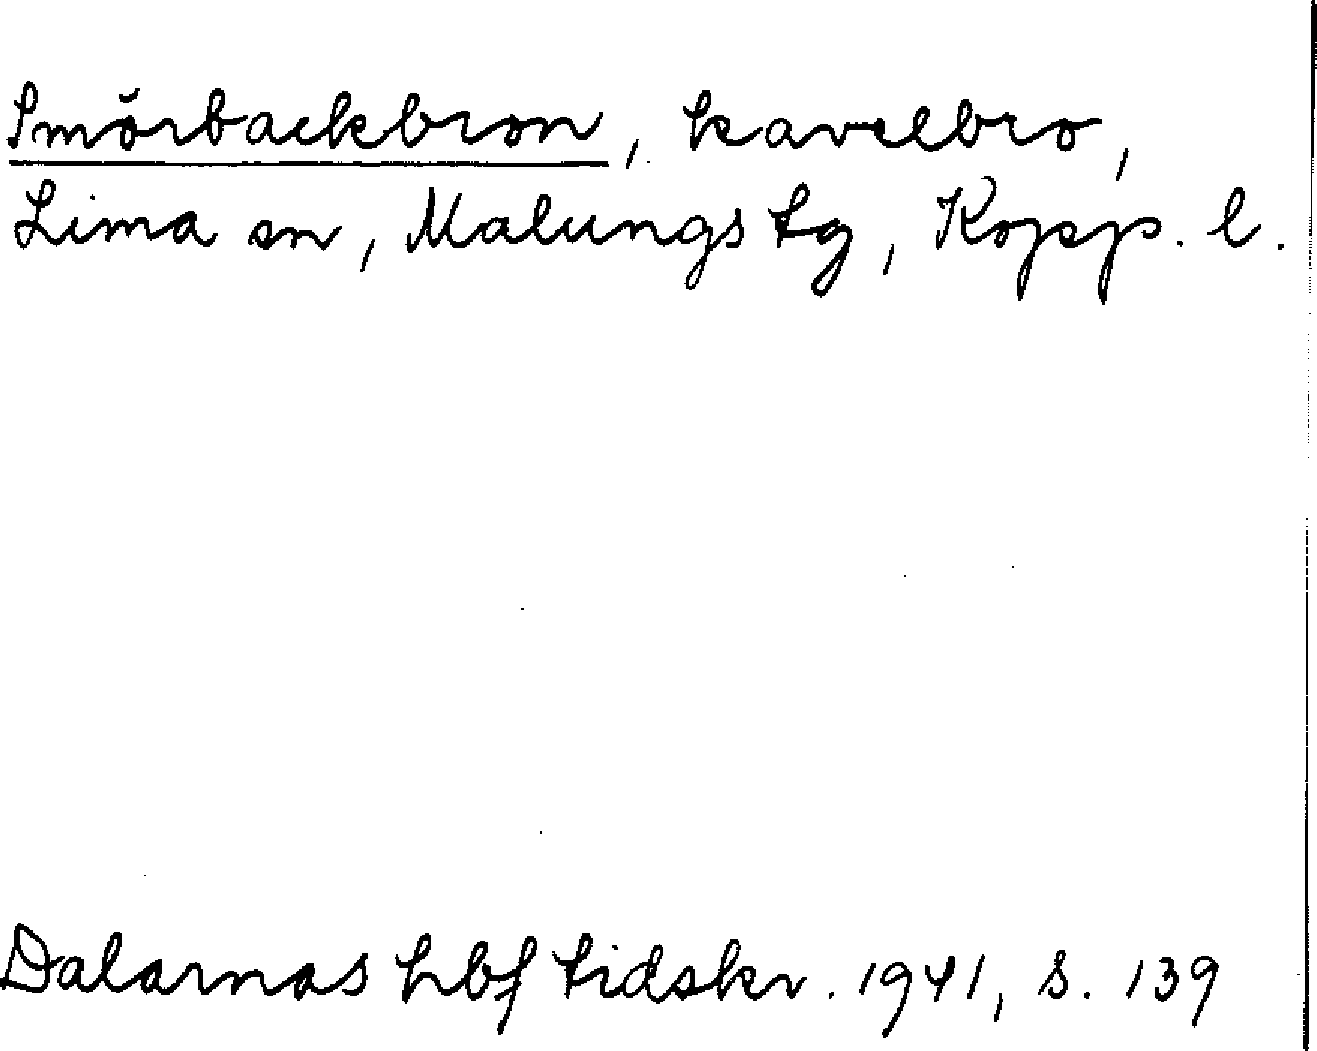 Smörbackbron, kavelbro,
Lima sn, Malungs tg, Kopp. l.
Dalarnas hbf tidskr. 1941, s. 139